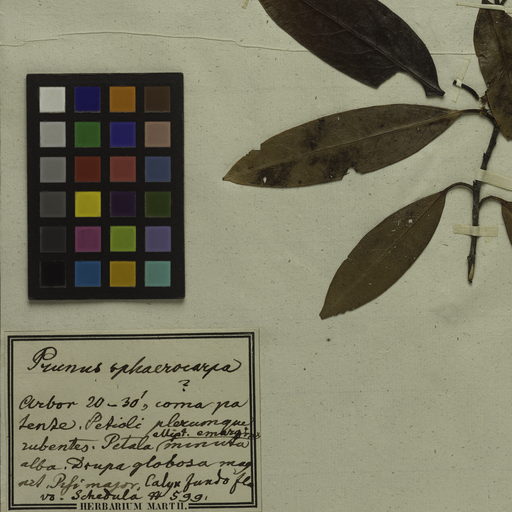 Prunus sphaerocarpa
?
Arbor 20-30', coma pa
tense. Petioli plerumque
ellipt. emargin
rubentes. Petala minuta
alba. Drupa globosa mag
nit. Pisi major. Calyx fundo fla
vo. Schedula # 599.
HERBARIUM MARTII.